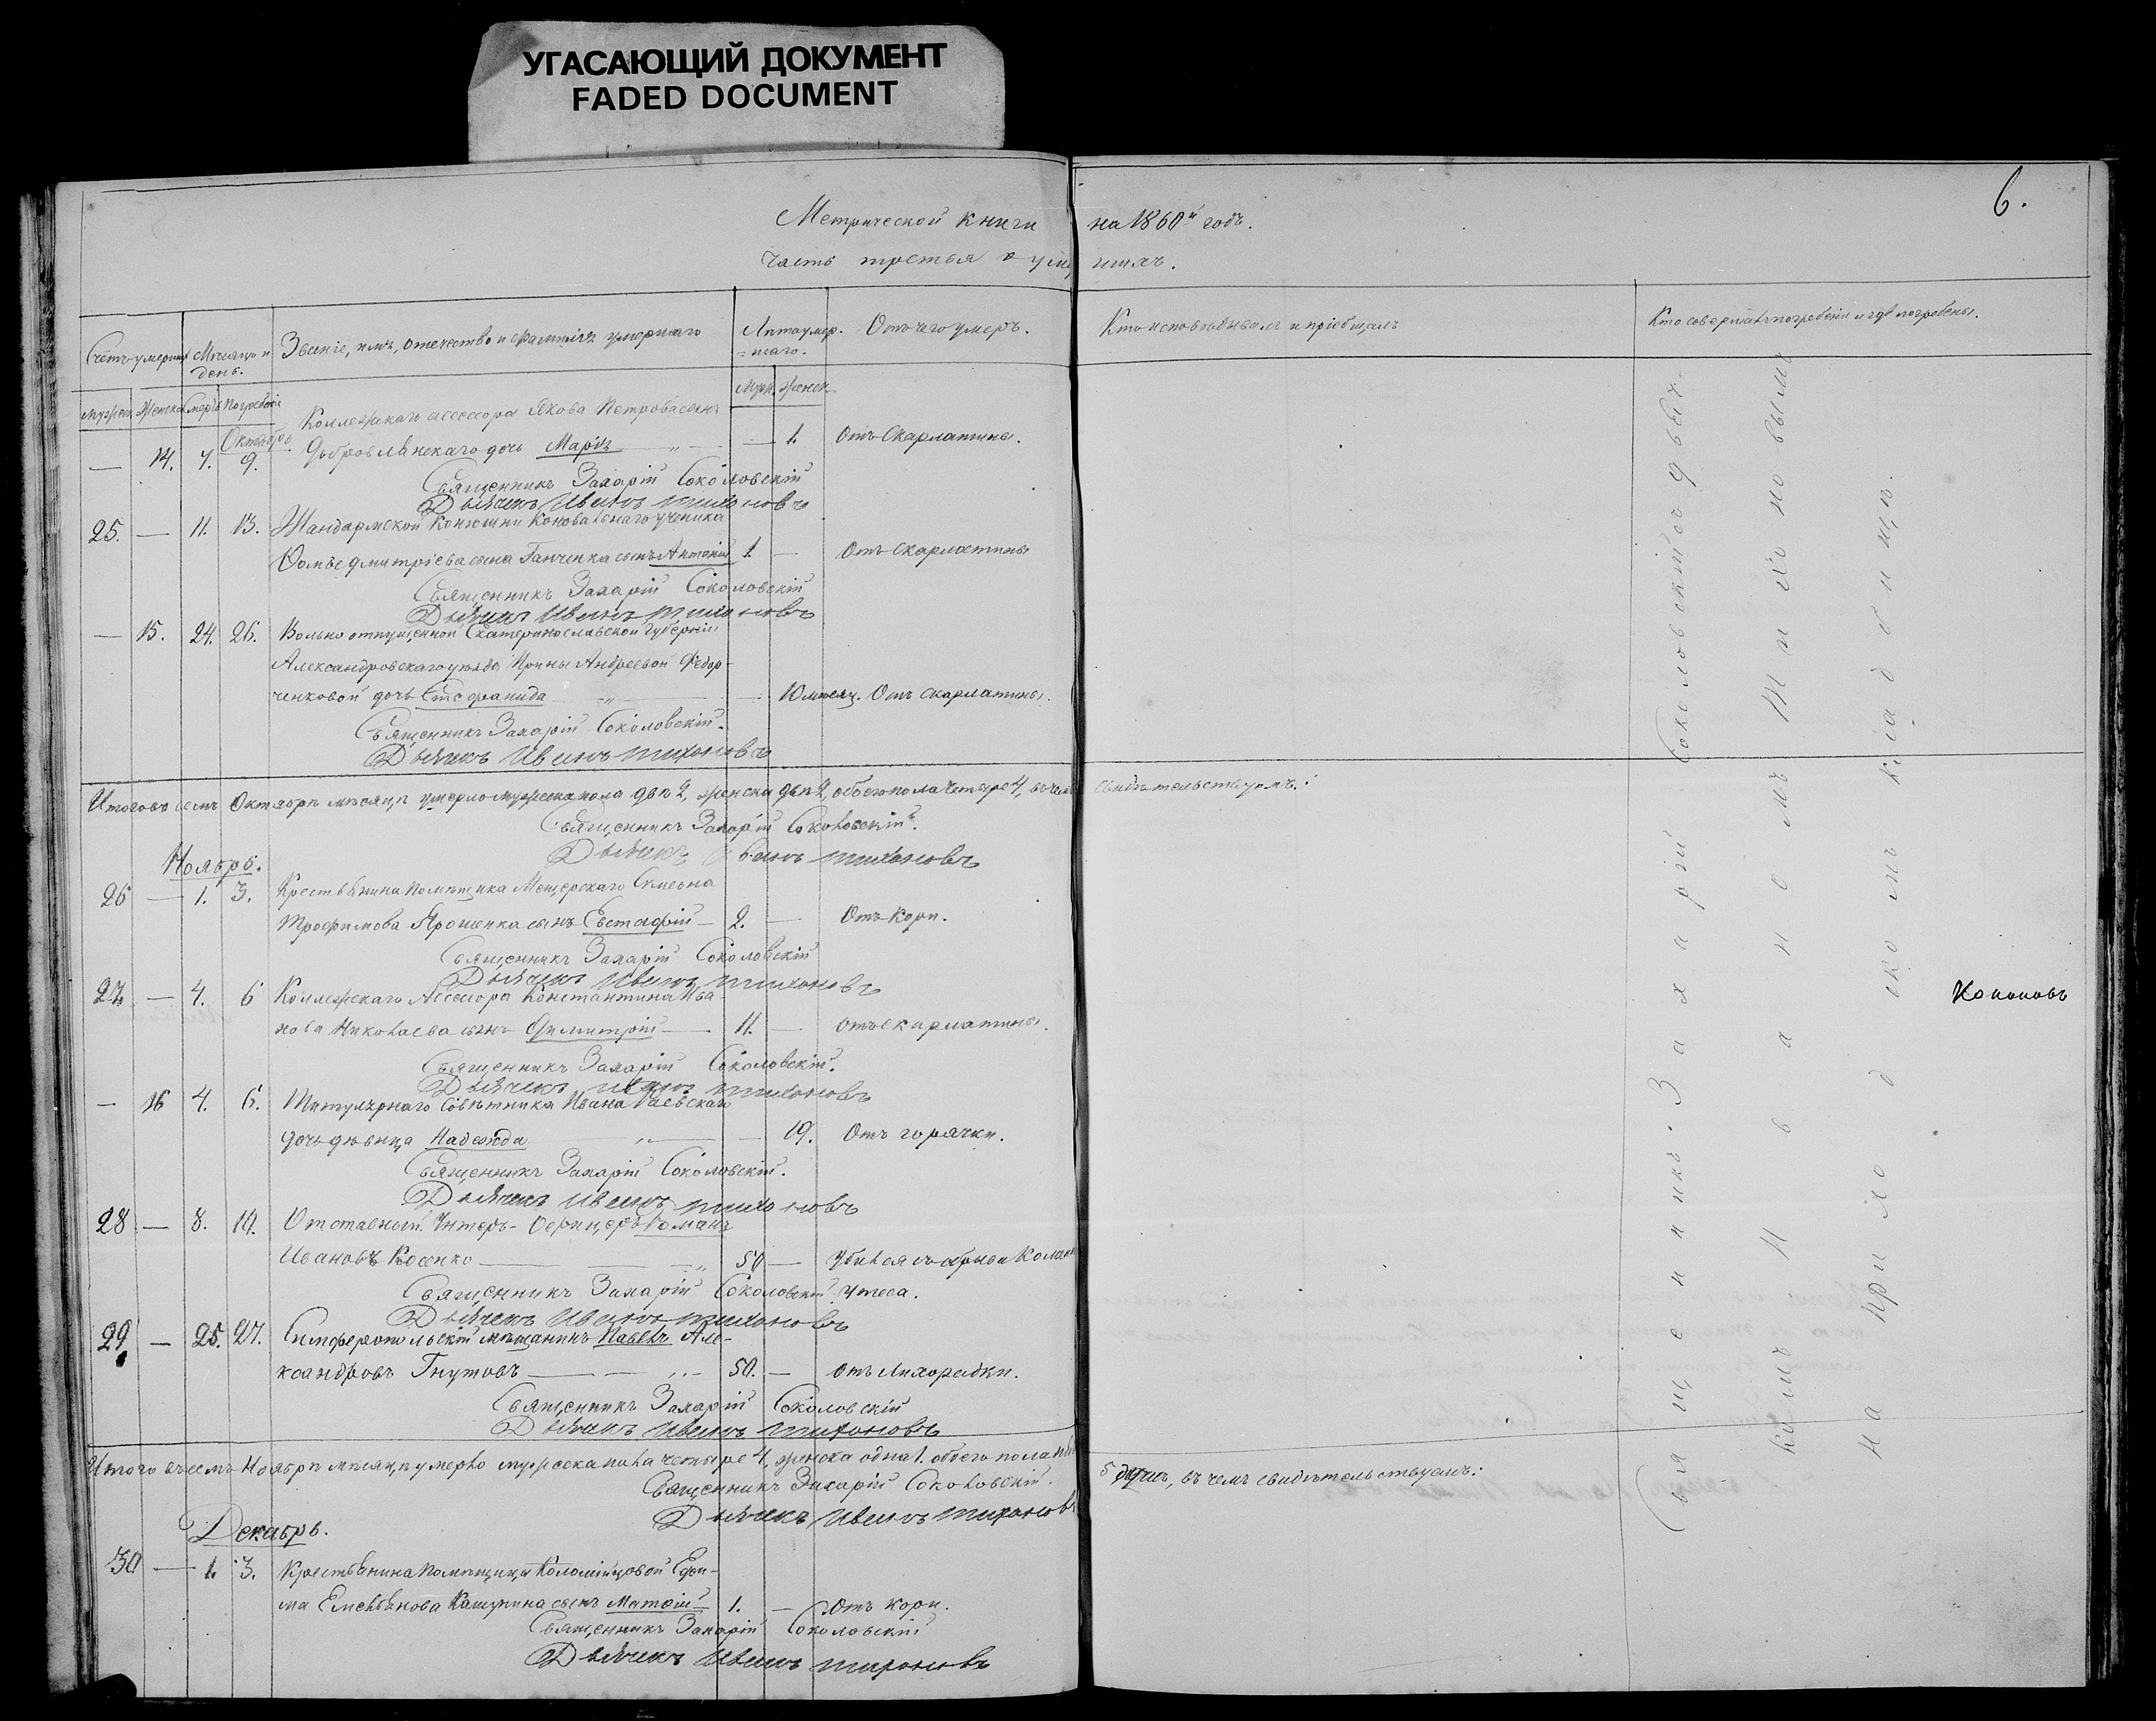 УГАСАЮЩИЙ ДОКУМЕНТ
FADED DOCUMENT
6.
Метрической книги на 1860й годъ.
Часть третья о уме шихъ.
Счетъ умерших
Мѣсяцъ и день.
Званіе, имя, отечество и фамилія умершаго
Лѣта умер-
шаго.
Отъ чего умеръ.
Кто исповѣдывалъ и пріобщалъ
Кто совершалъ погребеніе и гдѣ погребены.
Мужеск. Женска Смерть Погребенія
Муж. Женск.
Октябрь
Коллежскаго ассесора Якова Петрова сына
— 14. 7. 9. Добровлянскаго дочь Марія — 1. Отъ Скарлатины.
Священникъ Захарій Соколовскій
Дьячекъ Иванъ Тихоновъ
25. — 11. 13. Жандармской Конюшни Коновальнаго ученика
Ѳомы Дмитріева сына Ганченка сынъ Антоній 1. — Отъ скарлатины
Священникъ Захарій Соколовскій
Дьячекъ Иванъ Тихоновъ
— 15. 24. 26. Вольно отпущенной Екатеринославской Губерніи
Александровскаго уѣзда Ирины Андреевой Федор-
ченковой дочь Стефанида — 10 мѣсяц. Отъ скарлатины.
Священникъ Захарій Соколовскій.
Дьячекъ Иванъ Тихоновъ
Итого въ семъ Октябрѣ мѣсяцѣ умерло мужеска пола два 2, женска двѣ 2, обоего пола четыре 4, въ чемъ свидѣтельствуемъ:
Священникъ Захарій Соколовскій.
Дьячекъ Иванъ Тихоновъ
Ноябрь.
26 — 1. 3. Крестьянина помѣщика Мещерскаго Симеона
Трофимова Ярошенка сынъ Евстафій — 2. — Отъ Кори.
Священникъ Захарій Соколовскій
Дьячекъ Иванъ Тихоновъ
27. — 4. 6 Коллежскаго Ассесора Константина Ива-
нова Николаева сынъ Димитрій — 11. — отъ скарлатины.
Священникъ Захарій Соколовскій.
Дьячекъ Иванъ Тихоновъ
— 16 4. 6. Титулярнаго Совѣтника Ивана Раевскаго
дочь дѣвица Надежда — 19. Отъ горячки.
Священникъ Захарій Соколовскій.
Дьячекъ Иванъ Тихоновъ
28 — 8. 10. Отставный Унтеръ-Офицеръ Романъ
Ивановъ Косенко — 50 — Убился съ
Священникъ Захарій Соколовскій утеса.
Дьячекъ Иванъ Тихоновъ
29 — 25. 27. Симферопольскій мѣщанинъ Павелъ Але-
ксандровъ Гнутовъ — 50. — отъ Лихорадки.
Священникъ Захарій Соколовскій
Дьячекъ Иванъ Тихоновъ
Итого въ семъ Ноябрѣ мѣсяцѣ умерло мужеска пола четыре 4, женска одна 1. обоего пола 5 душъ, въ чемъ свидѣтельствуемъ:
Священникъ Захарій Соколовскій.
Дьячекъ Иванъ Тихоновъ
Декабрь.
30 — 1. 3. Крестьянина Помѣщицы Коломійцовой Ефи-
ма Емельянова Кашунина сынъ Матѳій 1. — Отъ кори.
Священникъ Захарій Соколовскій
Дьячекъ Иванъ Тихоновъ
Священникъ Захарій Соколовскій съ дьяч-
комъ Иваномъ Тихоновымъ
на приходскомъ кладбищѣ.
Кононовъ